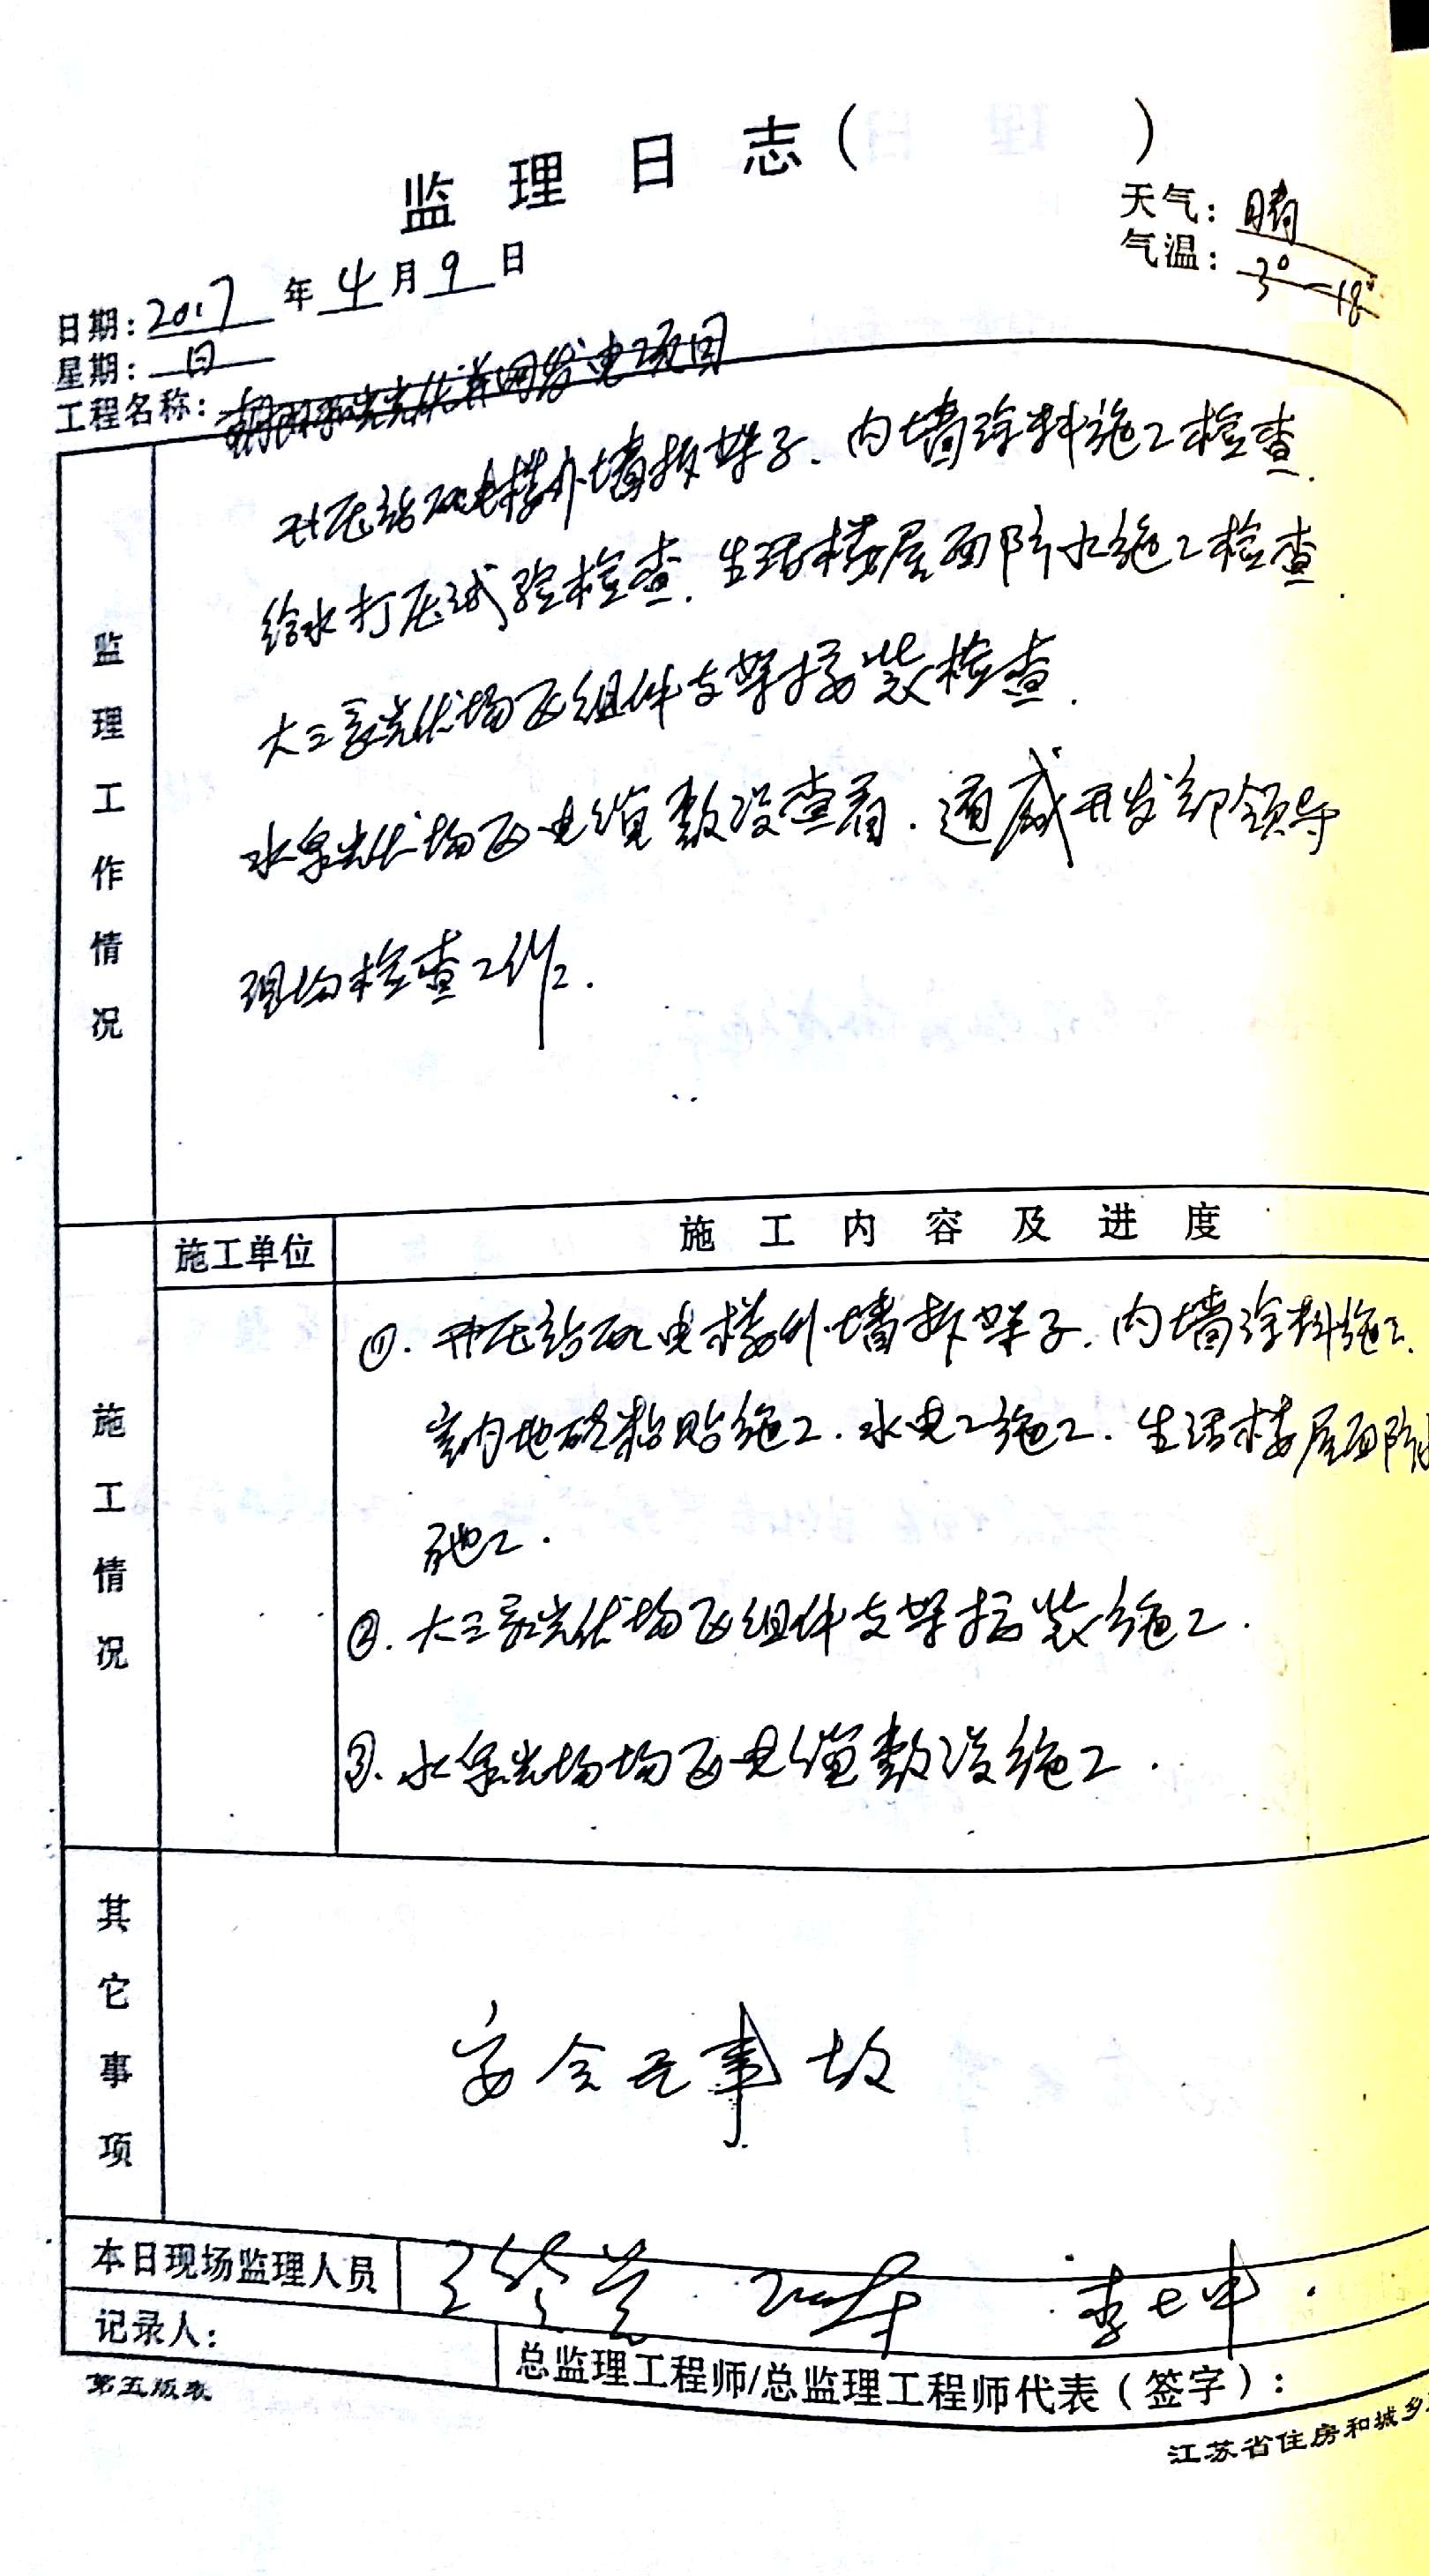 监理日志(          )
天气:晴
气温:3°—18°
日期:2017年4月9日
星期:日
工程名称:朝阳 光伏并网发电项目
升压站配电楼外墙拆架子.内墙涂料施工检查.
给水打压试验检查.生活楼屋面防水施工检查.
大三家光伏场区组件支架安装检查.
水泉光伏场区电缆敷设查看.通威开发部领导
现场检查工作.
监理工作情况
施工单位
施工内容及进度
①.升压站配电楼外墙拆架子.内墙涂料施工.
室内地砖粘贴施工.水电工施工.生活楼屋面防水
施工.
②.大三家光伏场区组件支架 装施工.
③.水泉光场场区电缆敷设施工.
施工情况
其它事项
安全无事故
本日现场监理人员
记录人:
总监理工程师/总监理工程师代表(签字):
第五版表
江苏省住房和城乡